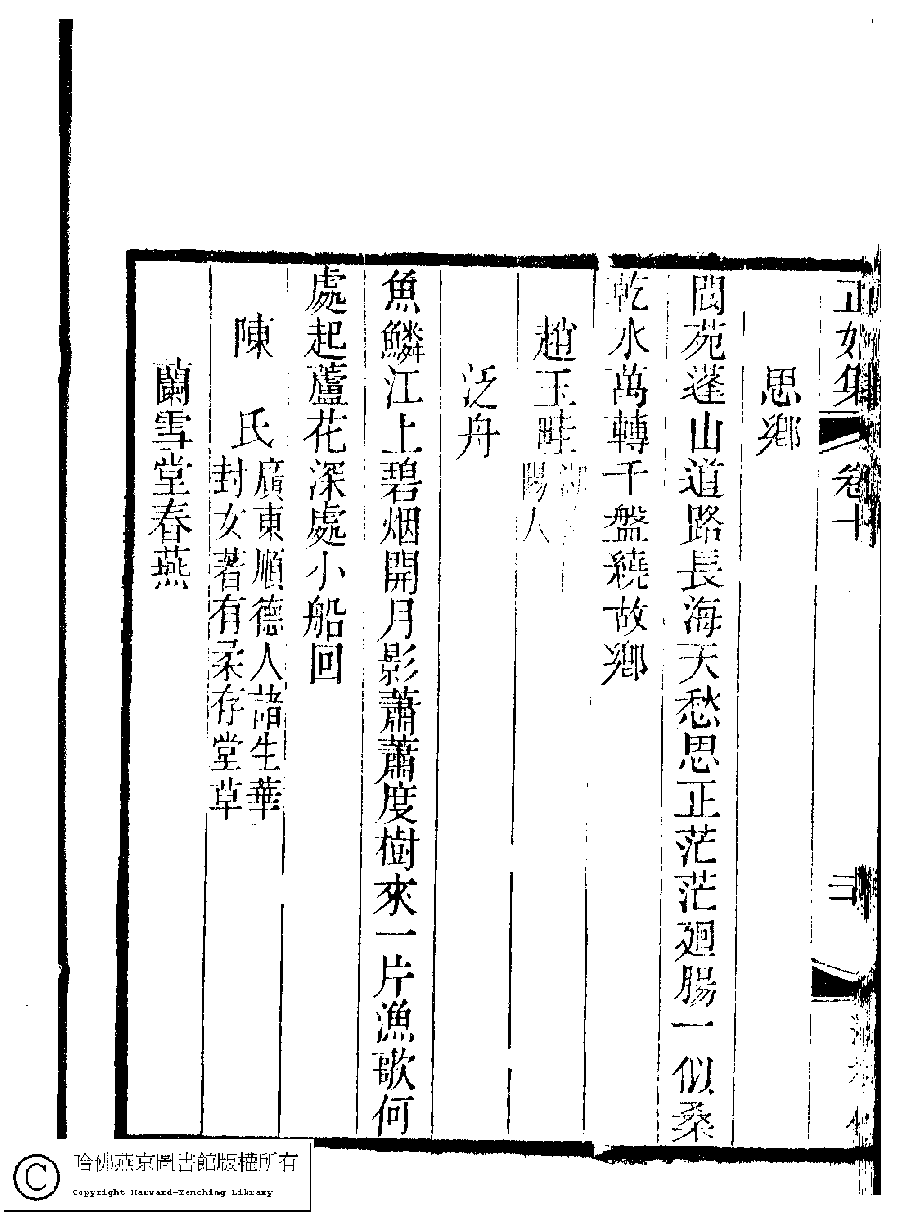 正始集 卷十 三
思鄉
閬苑蓬山道路長海天愁思正茫茫廻腸一似桑
乾水萬轉千盤繞故鄉
趙玉畦
陽人
泛舟
魚鱗江上碧烟開月影蕭蕭度樹來一片漁歌何
處起蘆花深處小船回
陳 氏 廣東順德人諸生華
封女著有柔存堂草
蘭雪堂春燕
哈佛燕京圖書館版權所有
Copyright Harvard-Yenching Library